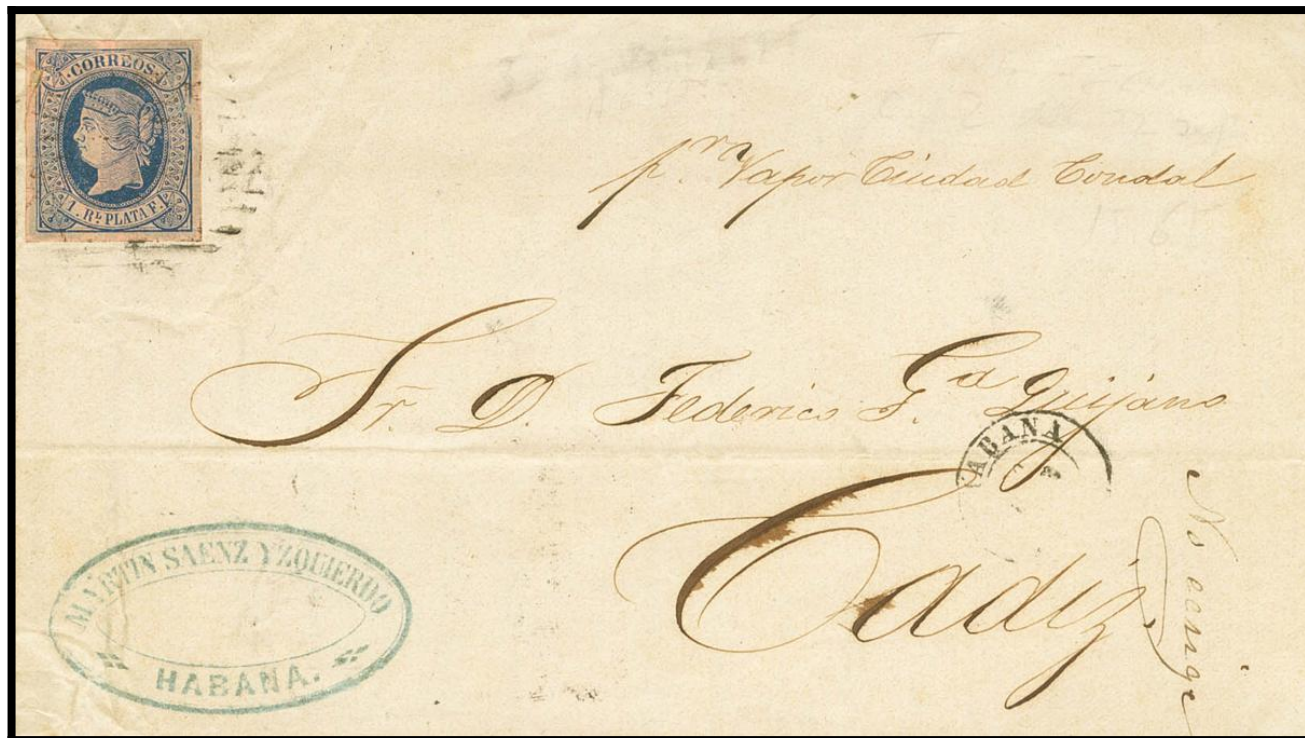 CORREOS
1. Rl PLATA F.
pr. Vapor Ciudad Condal
Sr. D. Federico F. Ga Quijano
Cadiz
HABANA
MARTIN SAENZ YZQUIERDO
HABANA.
No